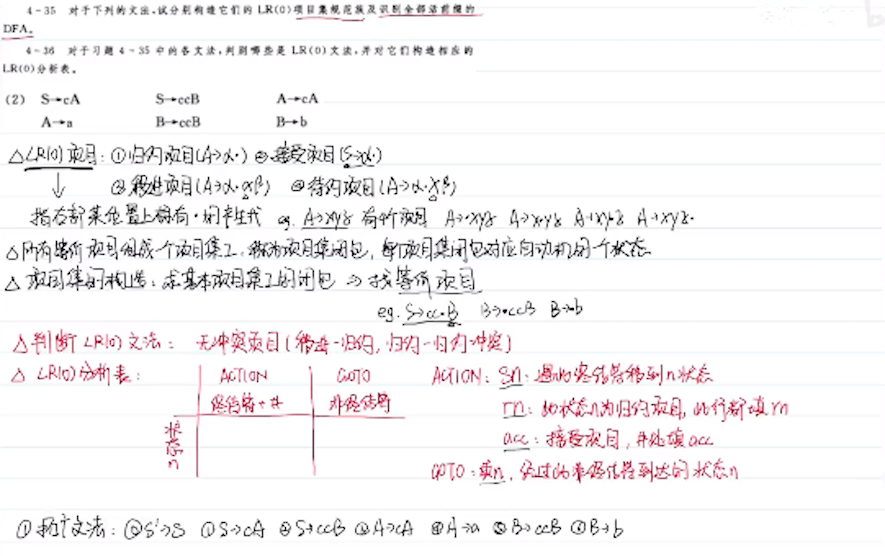 4-35 对于下列的文法,试分别构造它们的 LR(0)项目集规范族及识别全部活前缀的
DFA。
4-36 对于习题 4-35 中的各文法,判别哪些是 LR(0)文法,并对它们构造相应的
LR(0)分析表。
(2) S→cA S→ccB A→cA
A→a B→ccB B→b
△LR(0)项目: ①归约项目(A→α·) ②接受项目(S→α·)
③移进项目(A→α·aβ) ④待约项目(A→α·Xβ)
指右部某位置上标有·的产生式 eg. A→xyz 有4个项目 A→·xyz A→x·yz A→xy·z A→xyz·
△所有等价项目组成一个项目集I,称为项目集闭包,每个项目集闭包对应自动机的一个状态
△项目集的构造:求基本项目集I的闭包 ⇒ 找等价项目
eg. S→cc·B B→·ccB B→·b
△判断LR(0)文法: 无冲突项目(移进-归约,归约-归约冲突)
△LR(0)分析表: ACTION GOTO ACTION: Sn: 遇到终结符移到n状态
终结符+# 非终结符 rn: 此状态n为归约项目,此行都填rn
状态n acc: 接受项目,#处填acc
GOTO: 填n,经过的非终结符到达的状态n
①拓广文法: ⓪S'→S ①S→cA ②S→ccB ③A→cA ④A→a ⑤B→ccB ⑥B→b